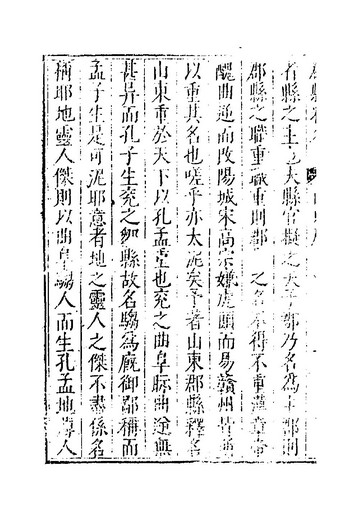 者縣之主也大縣官擬之天 郡乃名為 郡則
郡縣之職重職重則郡 之名不得不重漢章帝
醜曲逆而改陽城宋高宗嫌虎頭而易贛州皆
以重其名也嗟乎亦太泥矣予著山東郡縣釋名
山東重於天下以孔孟重也兗之曲阜脉曲逆無
甚异而孔子生兗之鄒縣故名騶為廐御鄙稱而
孟子生是可泥耶意者地之靈人之傑不盡係名
稱耶地靈人傑則以曲阜騶人而生孔孟地得人